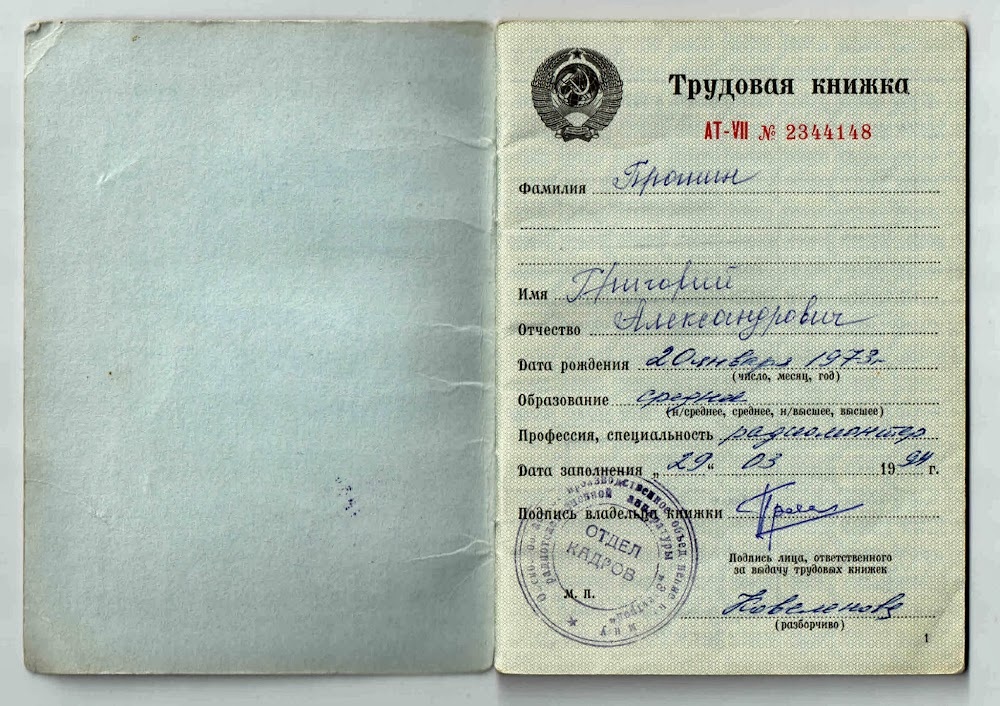 Трудовая книжка
АТ-VII № 2344148
Фамилия Пронин
Имя Григорий
Отчество Александрович
Дата рождения 20 января 1973 г.
(число, месяц, год)
Образование среднее
(н/среднее, среднее, н/высшее, высшее)
Профессия, специальность радиомонтер
Дата заполнения „29“ 03 1994 г.
Подпись владельца книжки
ОТДЕЛ
КАДРОВ
Подпись лица, ответственного
за выдачу трудовых книжек
М. П.
(разборчиво)
1